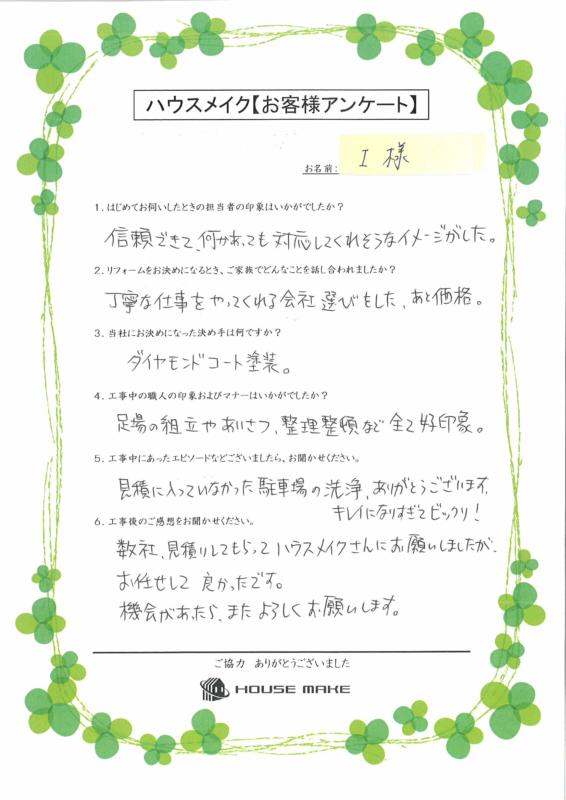 ハウスメイク【お客様アンケート】
お名前: I 様
1．はじめてお伺いしたときの担当者の印象はいかがでしたか？
信頼できて、何かあっても対応してくれそうなイメージがした。
2．リフォームをお決めになるとき、ご家族でどんなことを話し合われましたか？
丁寧な仕事をやってくれる会社選びをした、あと価格。
3．当社にお決めになった決め手は何ですか？
ダイヤモンドコート塗装。
4．工事中の職人の印象およびマナーはいかがでしたか？
足場の組立やあいさつ、整理整頓など全て好印象。
5．工事中にあったエピソードなどございましたら、お聞かせください。
見積に入っていなかった駐車場の洗浄、ありがとうございます。
キレイになりすぎてビックリ！
6．工事後のご感想をお聞かせください。
数社、見積りしてもらってハウスメイクさんにお願いしましたが、
お任せして良かったです。
機会があったら、またよろしくお願いします。
ご協力　ありがとうございました
HOUSE MAKE